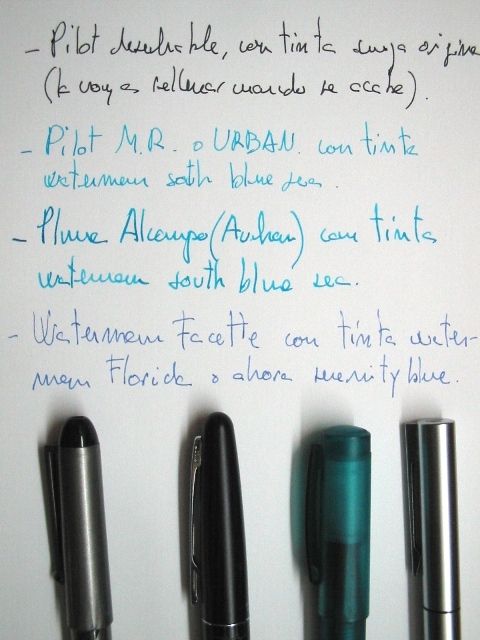 - Pilot desechable, con tinta suya origina
(la voy a rellenar cuando se acabe).
- Pilot M.R. o URBAN. con tinta
waterman south blue sea.
- Pluma Alcampo (Auchan) con tinta
waterman south blue sea.
- Waterman Facette con tinta water-
man Florida o ahora serenity blue.